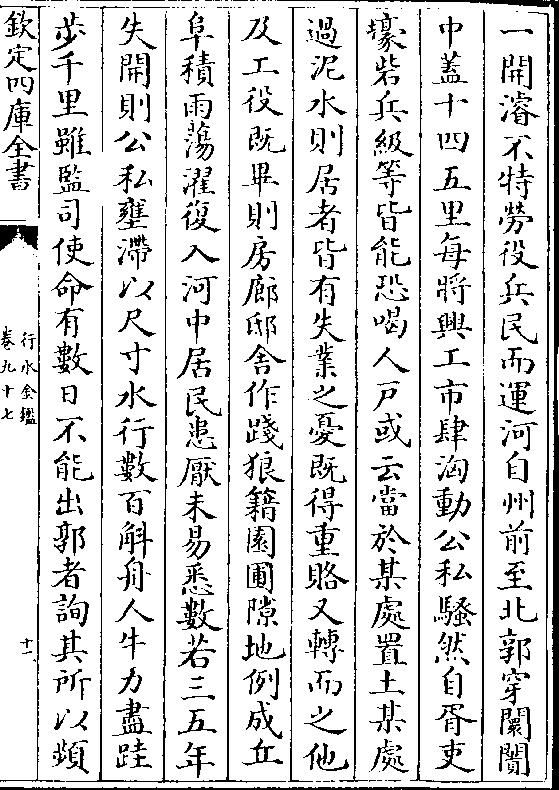 一開濬不特勞役兵民而運河自州前至北郭穿闤闠
中蓋十四五里每將興工市肆洶動公私騷然自胥吏
壕砦兵級等皆能恐喝人戸或云當於某處置土某處
過泥水則居者皆有失業之憂既得重賂又轉而之他
及工役既畢則房廊邸舍作踐狼籍園圃隙地例成丘
阜積雨蕩濯復入河中居民患厭未易悉數若三五年
失開則公私壅滯以尺寸水行數百斛舟人牛力盡跬
歩千里雖監司使命有數日不能出郭者詢其所以頻
欽定四庫全書
行水金鑑
卷九十七
十一